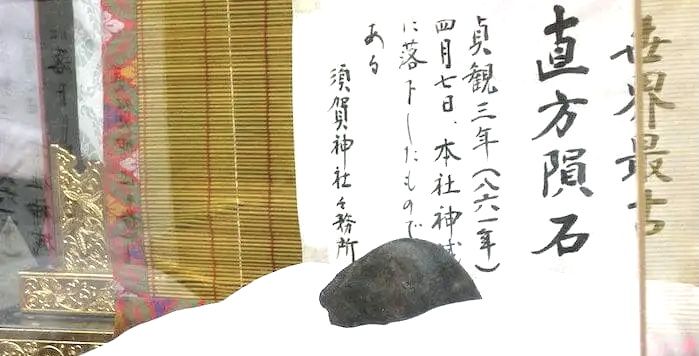 世界最古
直方隕石
貞観三年(八六一年)
四月七日、本社神域
に落下したもので
ある
須賀神社々務所